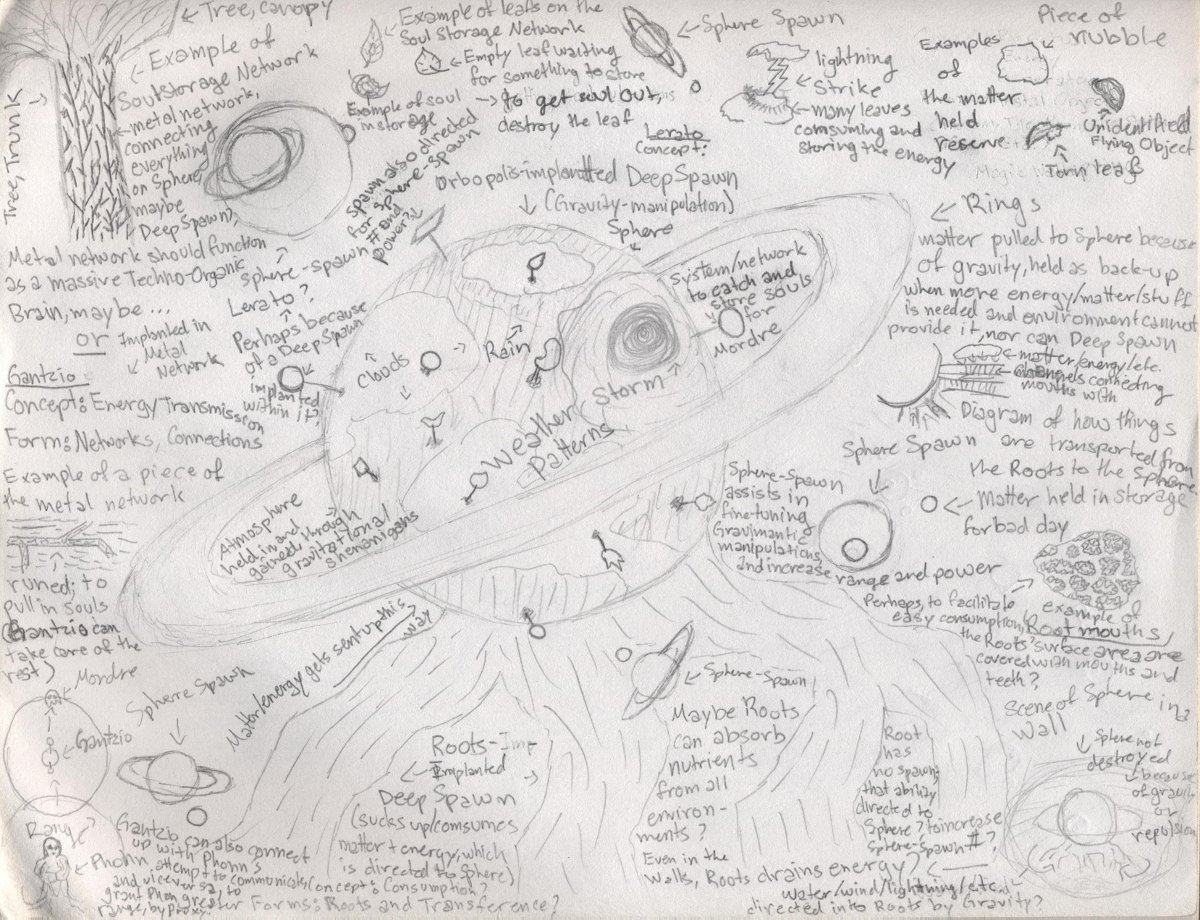 Tree, canopy
Example of
Soul Storage Network
metal network,
connecting
everything
on Sphere
maybe
Deep Spawn?
Tree, Trunk
Metal network should function
as a massive Techno-Organic
Brain, maybe ...
or
Implanted in
Metal
Network
Gantzio
Concept: Energy Transmission
Forms: Networks, Connections
Example of a piece of
the metal network
runed; to
pull in souls
(Gantzio can
take care of the
rest)
Mordre
Gantzio
Rang?
Sphere Spawn
Gantzio can also connect
up with Phohn's
and vice versa, to
attempt to communicate
grant Phon greater
range, by proxy.
Example of leafs on the
Soul Storage Network
Empty leaf waiting
for something to store
to get soul out,
destroy the leaf
Example of soul
in storage
Spawn also directed
for sphere-spawn
# and
power?
sphere-spawn
Lerato?
Perhaps because
of a Deep Spawn
implanted
within it?
Sphere Spawn
Lerato
Concept:
Orbopolis-implanted Deep Spawn
(Gravity-manipulation)
Sphere
lightning
Strike
many leaves
consuming and
storing the energy
Examples
of
the matter
held
reserve
Piece of
rubble
Unidentified
Flying Object
Torn leaf
Rings
matter pulled to Sphere because
of gravity, held as back-up
when more energy/matter/stuff
is needed and environment cannot
provide it, nor can Deep Spawn
matter/energy/etc.
channels connecting
mouths with
Diagram of how things
are transported from
the Roots to the Sphere
System/network
to catch and
store souls
for
Mordre
Clouds
Rain
Storm
Weather
Patterns
Atmosphere
held in and
gained through
gravitational
shenanigans
Matter/energy gets sent up this
way
Sphere Spawn
Sphere-Spawn
assists in
fine-tuning
Gravimantic
manipulations,
and increase
range and power
Matter held in storage
for bad day
Perhaps, to facilitate
easy consumption,
the Roots' surface area are
covered with mouths and
teeth?
example of
Root mouths
Scene of Sphere in a
wall
Sphere not
destroyed
because
of gravity
or
repulsion
Sphere-Spawn
Roots-Imp
Implanted
Deep Spawn
(sucks up/comsumes
matter + energy, which
is directed to Sphere)
Concept: Consumption?
Forms: Roots and Transference?
Maybe Roots
can absorb
nutrients
from all
environ-
ments?
Even in the
Walls, Roots drains energy?
Root
has
no spawn;
that ability
directed to
Sphere? to increase
Sphere-spawn #?
water/wind/lightning/etc.
directed into Roots by Gravity?